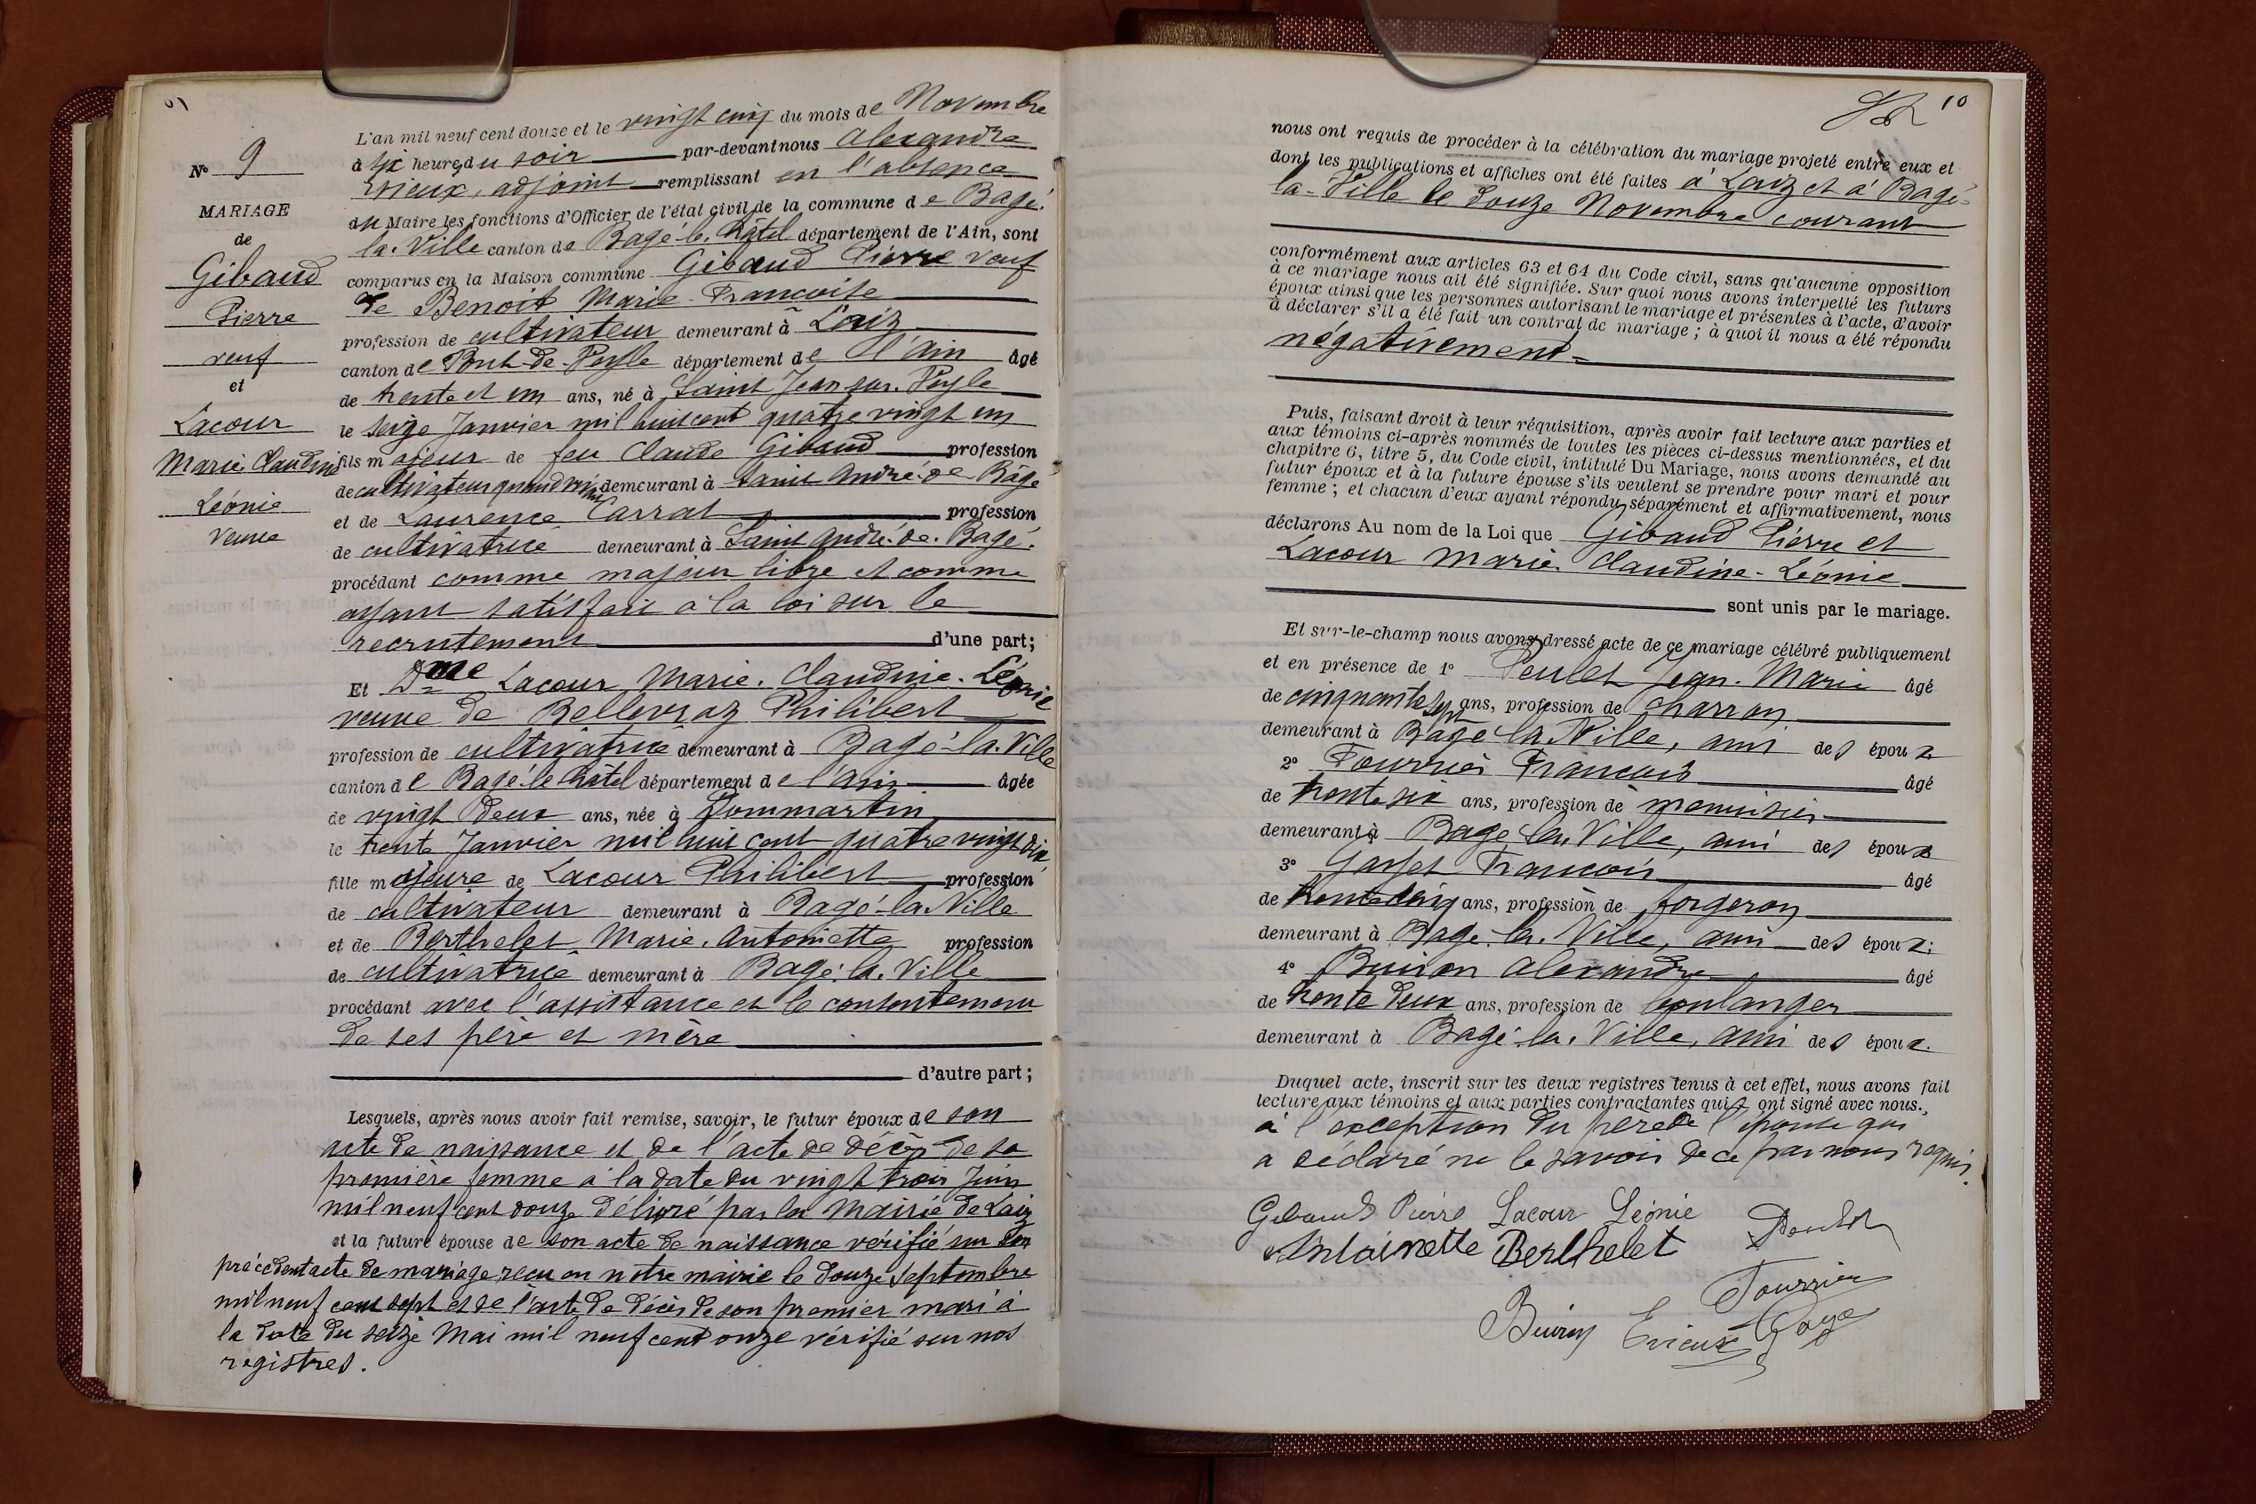 N° 9
MARIAGE
de
Gibaud
Pierre
veuf
et
Lacour
Marie Claudine
Léonie
veuve
L'an mil neuf cent douze et le vingt cinq du mois de Novembre
à six heures du soir par-devant nous Alexandre
Evieux, adjoint remplissant en l'absence
du Maire les fonctions d'Officier de l'état civil de la commune de Bagé-
la-Ville canton de Bagé-le-Châtel département de l'Ain, sont
comparus en la Maison commune Gibaud Pierre veuf
de Benoit Marie-Françoise
profession de cultivateur demeurant à Laiz
canton de Pont-de-Veyle département de l'ain âgé
de trente et un ans, né à Saint Jean sur Veyle
le seize Janvier mil huit cent quatre vingt un
fils majeur de feu Claude Gibaud profession
de cultivateur quand vivait demeurant à Saint André-de-Bagé
et de Laurence Carrat profession
de cultivatrice demeurant à Saint André-de-Bagé.
procédant comme majeur libre et comme
ayant satisfait à la loi sur le
recrutement d'une part;
Et Dme Lacour Marie-Claudine-Léonie
veuve de Bellevraz Philibert
profession de cultivatrice demeurant à Bagé-la-Ville
canton de Bagé-le-Châtel département de l'ain âgée
de vingt deux ans, née à Dommartin
le trente Janvier mil huit cent quatre vingt dix
fille majeure de Lacour Philibert profession
de cultivateur demeurant à Bagé-la-Ville
et de Berthelet Marie-Antoinette profession
de cultivatrice demeurant à Bagé-la-Ville
procédant avec l'assistance et le consentement
de ses père et mère
d'autre part;
Lesquels, après nous avoir fait remise, savoir, le futur époux de son
acte de naissance et de l'acte de décès de sa
première femme à la date du vingt trois Juin
mil neuf cent douze délivré par la Mairie de Laiz
et la future épouse de son acte de naissance vérifié sur son
précédent acte de mariage reçu en notre mairie le douze Septembre
mil neuf cent sept et de l'acte de décès de son premier mari à
la date du seize Mai mil neuf cent onze vérifié sur nos
registres.
10
nous ont requis de procéder à la célébration du mariage projeté entre eux et
dont les publications et affiches ont été faites à Laiz et à Bagé-
la-Ville le douze Novembre courant
conformément aux articles 63 et 64 du Code civil, sans qu'aucune opposition
à ce mariage nous ait été signifiée. Sur quoi nous avons interpellé les futurs
époux ainsi que les personnes autorisant le mariage et présentes à l'acte, d'avoir
à déclarer s'il a été fait un contrat de mariage; à quoi il nous a été répondu
négativement
Puis, faisant droit à leur réquisition, après avoir fait lecture aux parties et
aux témoins ci-après nommés de toutes les pièces ci-dessus mentionnées, et du
chapitre 6, titre 5, du Code civil, intitulé Du Mariage, nous avons demandé au
futur époux et à la future épouse s'ils veulent se prendre pour mari et pour
femme; et chacun d'eux ayant répondu séparément et affirmativement, nous
déclarons Au nom de la Loi que Gibaud Pierre et
Lacour Marie-Claudine-Léonie
sont unis par le mariage.
Et sur-le-champ nous avons dressé acte de ce mariage célébré publiquement
et en présence de 1° Jean-Marie âgé
de cinquante sept ans, profession de charron
demeurant à Bagé-la-Ville, ami des époux
2° Fourrier François âgé
de trente six ans, profession de menuisier
demeurant à Bagé-la-Ville, ami des époux
3° François âgé
de trente cinq ans, profession de forgeron
demeurant à Bagé-la-Ville, ami des époux:
4° Buiron Alexandre âgé
de trente deux ans, profession de boulanger
demeurant à Bagé-la-Ville, ami des époux.
Duquel acte, inscrit sur les deux registres tenus à cet effet, nous avons fait
lecture aux témoins et aux parties contractantes qui ont signé avec nous.,
à l'exception du père de l'épouse qui
a déclaré ne le savoir de ce par nous requis.
Gibaud Pierre Lacour Léonie
Antoinette Berthelet
Fourrier
Buiron Evieux